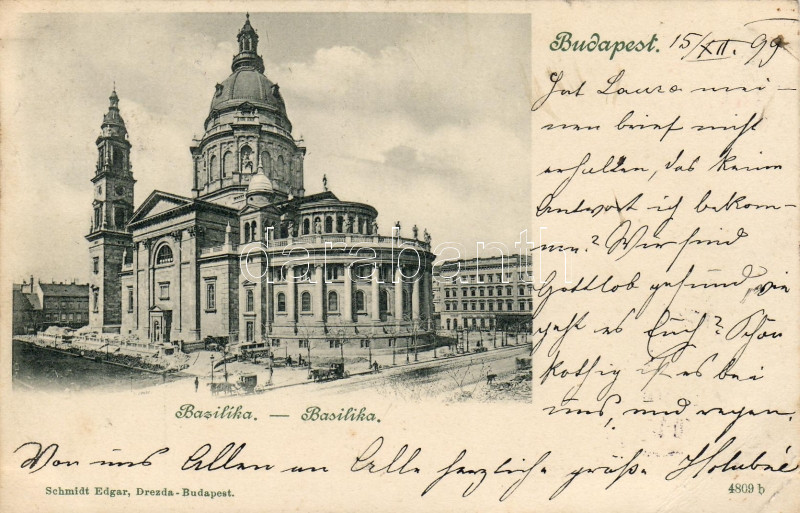 Budapest. 15/XII. 99
Hat Laura mei-
nen brief nicht
erhalten, das kein
Antwort ich bekom-
men? Wir sind
Gottlob gesund, wie
geht es Euch? Schön
kothig ist es bei
uns, und regen.
Bazilika. — Basilika.
Von uns Allen an Alle herzliche grüße
Schmidt Edgar, Drezda-Budapest.
4809 b
darabanth.com